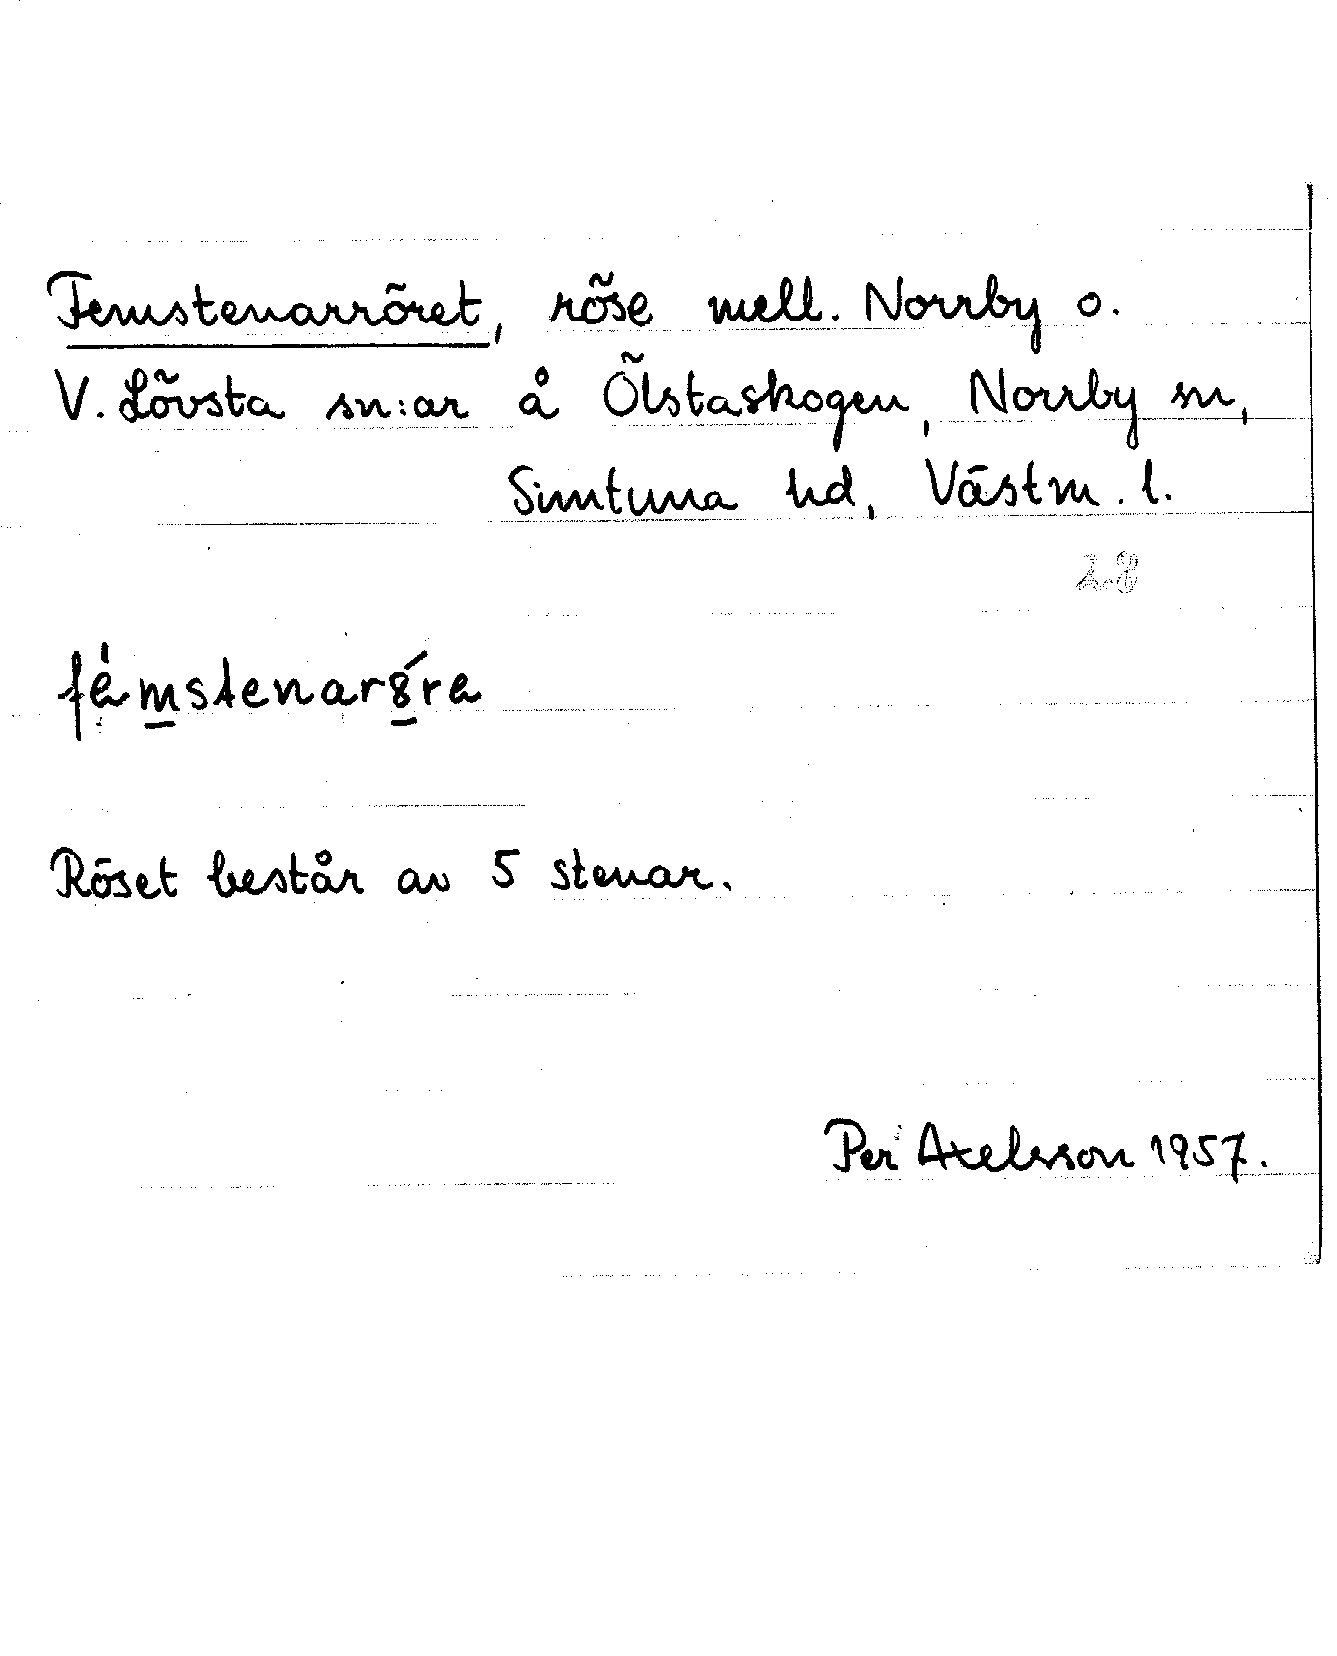 Femstenarröret, röse mell. Norrby o.
V. Lövsta sn:ar å Ölstaskogen, Norrby sn,
Simtuna hd, Västm. l.
28
Röset består av 5 stenar.
Per Axelsson 1957.